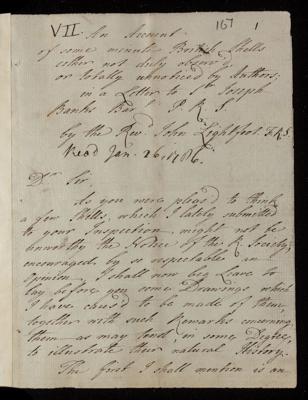 VII. An Account 167 1
of some minute British Shells
either not duly observ'd
or totally unnoticed by Authors;
in a Letter to Sr. Joseph
Banks Bart. P.R.S.
by the Rev. John Lightfoot. F.R.S.
Read Jan. 26. 1786.
Dr. Sir
As you were pleas'd to think
a few Shells, which I lately submitted
to your Inspection, might not be
unworthy the Notice of the R. Society;
encouraged by so respectable an
Opinion, I shall now beg Leave to
lay before you some Drawings which
I have caus'd to be made of them,
together with such Remarks concerning
them as may tend, in some Degree,
to illustrate their natural History.
The first I shall mention is an